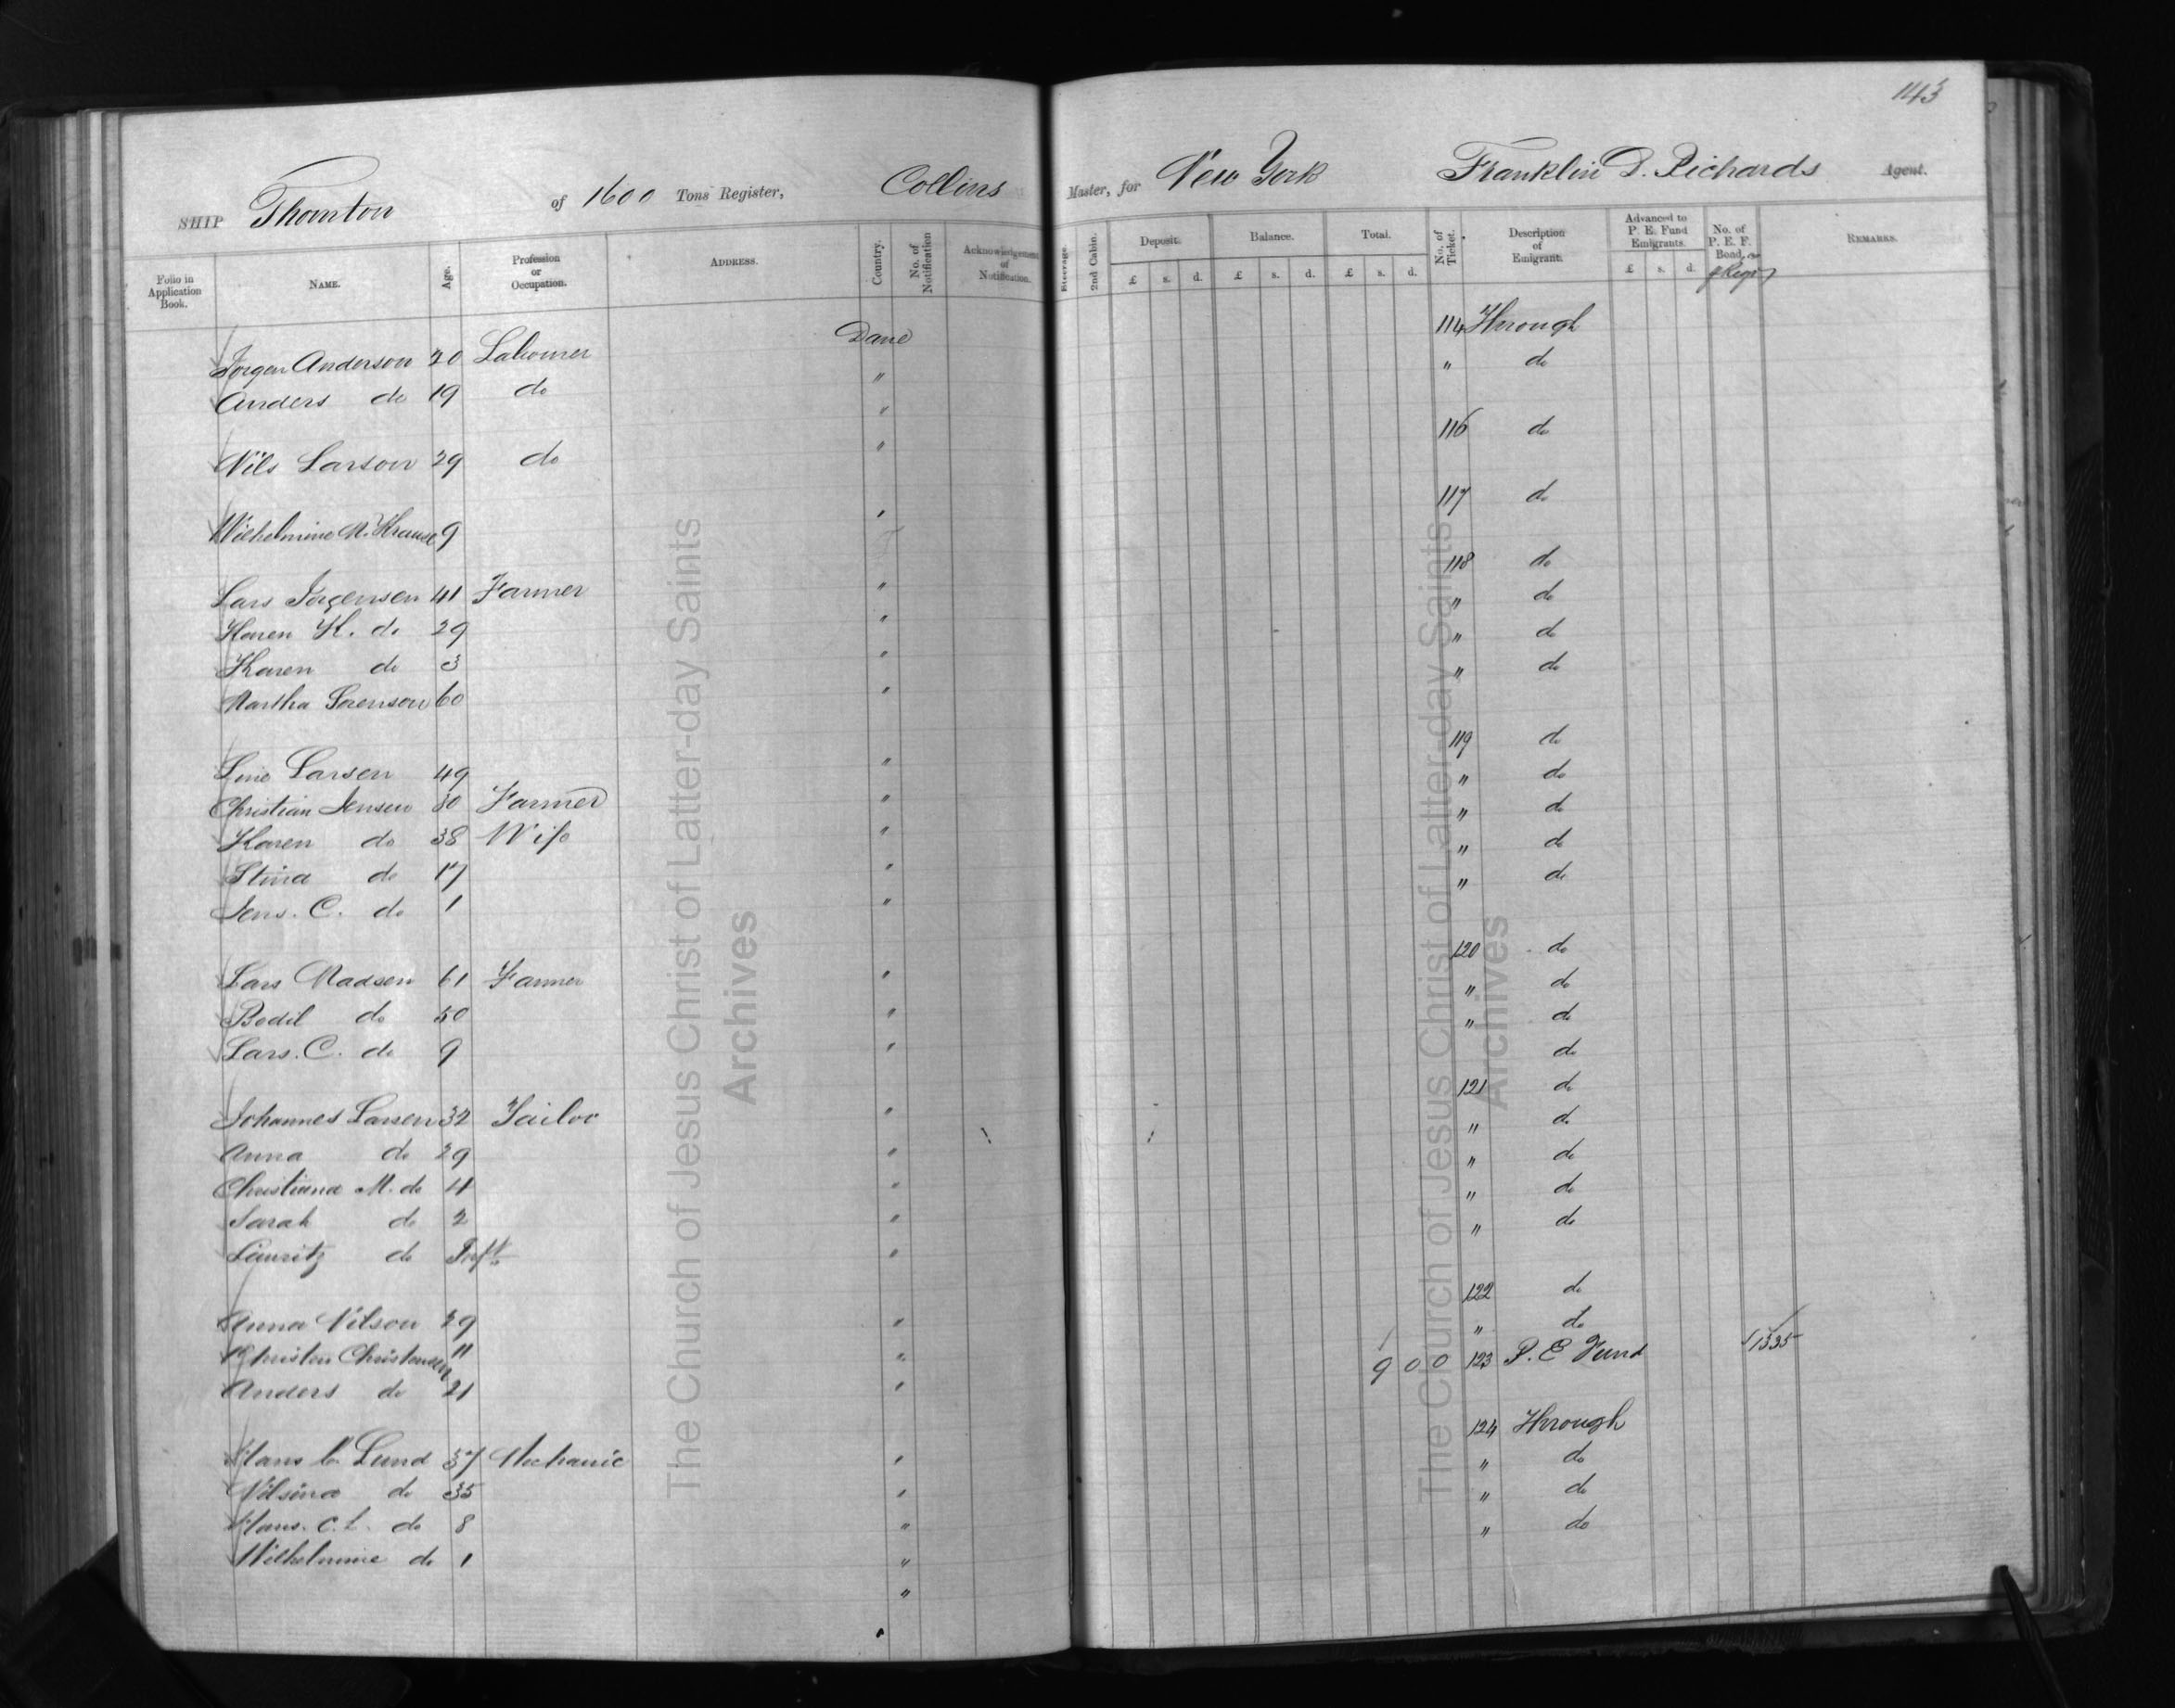 143
SHIP Thornton of 1600 Tons Register, Collins Master, for New York Franklin D. Richards Agent.
Folio in Application Book. NAME. Age. Profession or Occupation. ADDRESS. Country. No. of Notification Acknowledgement of Notification. Steerage. 2nd Cabin. Deposit. £ s. d. Balance. £ s. d. Total. £ s. d. No. of Ticket. Description of Emigrant. Advanced to P. E. Fund Emigrants. £ s. d. No. of P. E. F. Bond. REMARKS.
Jorgen Anderson 20 Labourer Dane 114 Through
Anders do 19 do " " do
Nils Larson 29 do " 116 do
Wilhelmine M. Krause 9 " 117 do
Lars Jorgensen 41 Farmer " 118 do
Karen K. do 29 " " do
Karen do 3 " " do
Martha Sorenson 60 " " do
Sine Larsen 49 " 119 do
Christian Jensen 30 Farmer " " do
Karen do 38 Wife " " do
Stina do 17 " " do
Jens. C. do 1 " " do
Lars Madsen 61 Farmer " 120 do
Bodil do 50 " " do
Lars. C. do 9 " " do
do
Johannes Larsen 32 Tailor " 121 do
Anna do 29 " " do
Christiana M. do 4 " " do
Sarah do 2 " " do
Lauritz do Inft " " do
Anna Nilson 29 " 122 do
Christen Christensen 11 " " do
Anders do 21 " 9 0 0 123 P. E Fund 1535
Hans C Lund 37 Mechanic " 124 Through
Nilsina do 35 " " do
Hans. C. L. do 8 " " do
Wilhelmine do 1 " " do
"
The Church of Jesus Christ of Latter-day Saints
Archives
The Church of Jesus Christ of Latter-day Saints
Archives